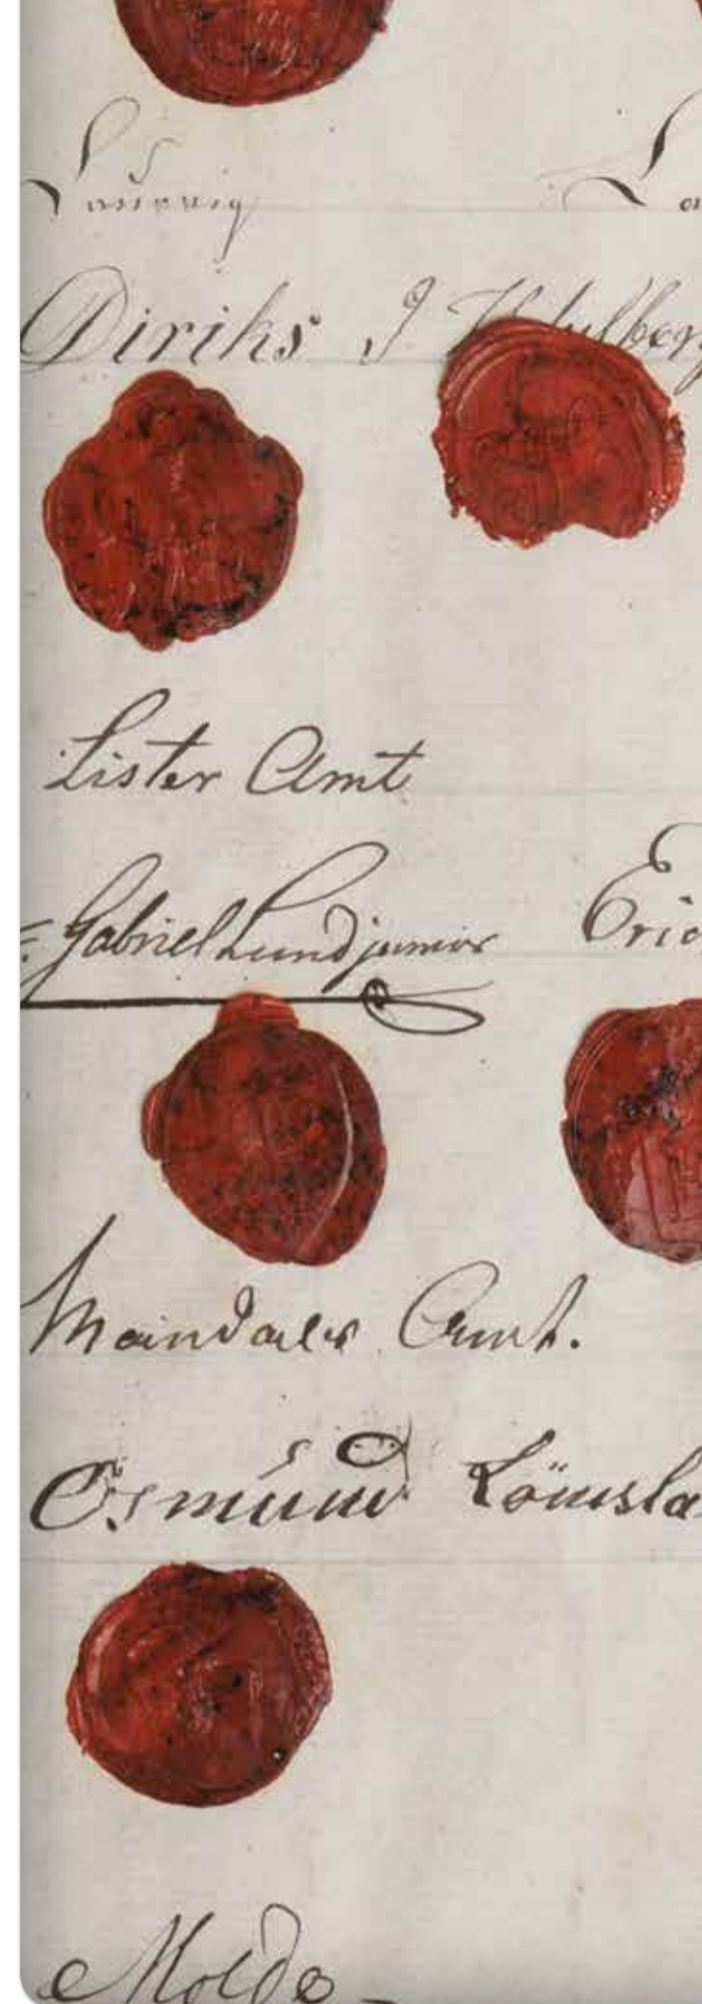 Laurvig
Diriks J
Lister Amt
Gabriel Lund junior Eric
Mandals Amt.
Osmund Lömsla
Molde